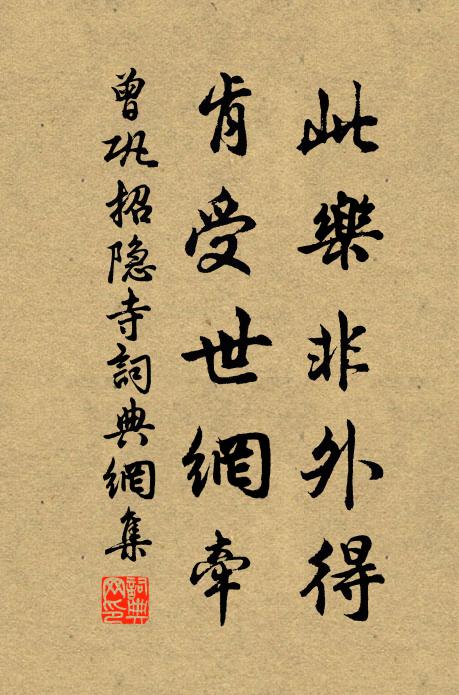 此樂非外得
肯受世網牽
曾巩招隐寺詞典網集
詞典网印